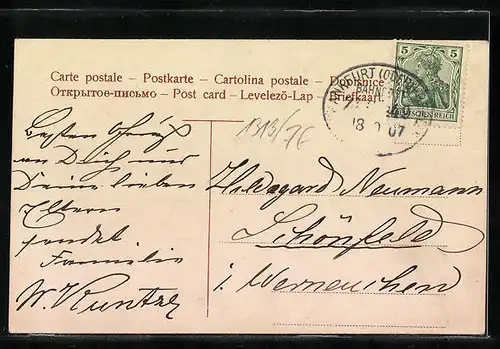 Carte postale – Postkarte – Cartolina postale – Dopisnice
Открытое-письмо – Post card – Levelezõ-Lap – Briefkaart.
5 5
FRANKFURT (ODER)
BAHNPOST
07
DEUTSCHES REICH
1313/7E
Besten Gruß
an Dich und
Deine lieben
Eltern
sendet
Familie
W. Kuntze
Hildegard Neumann
Schönfeld
i/ Werneuchen